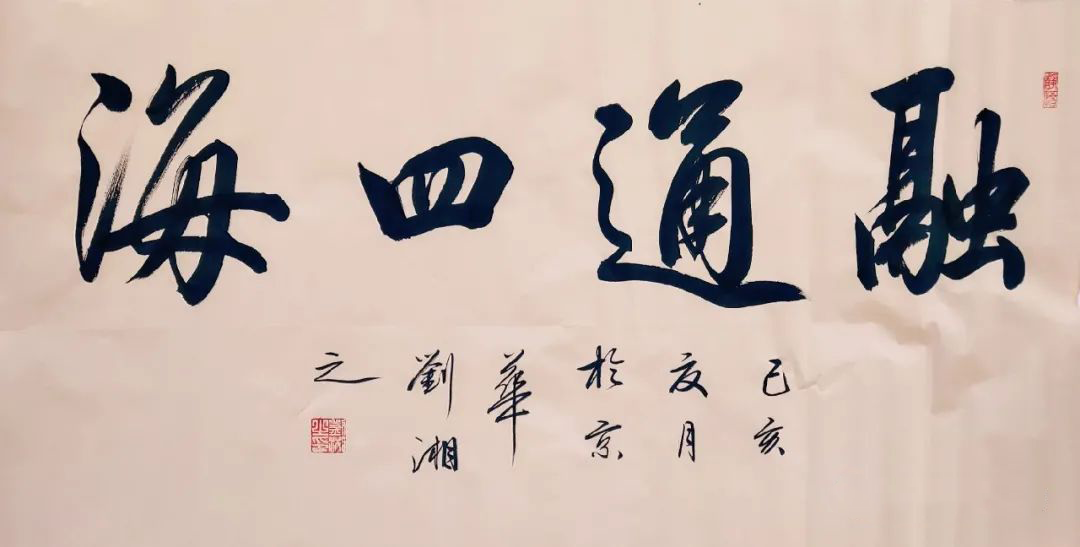 融通四海
己亥
夏月
於京
華
劉湘
之